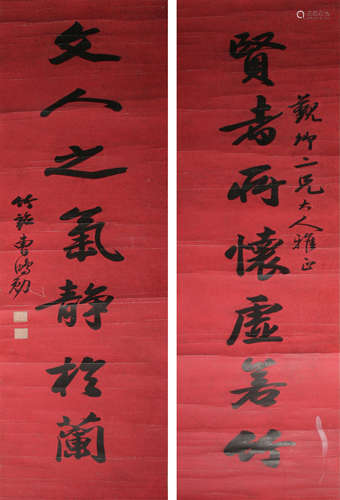 觐卿二兄大人雅正
賢者所懷虛若竹
文人之氣靜於蘭
竹銘曹鴻勛